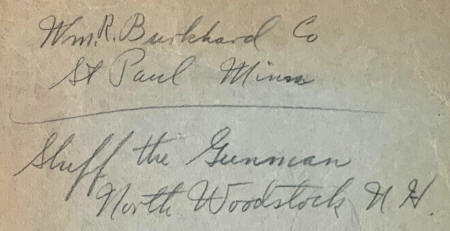 Wm. R. Burkhard Co
St Paul Minn
Shiff the Gunman
North Woodstock N H.